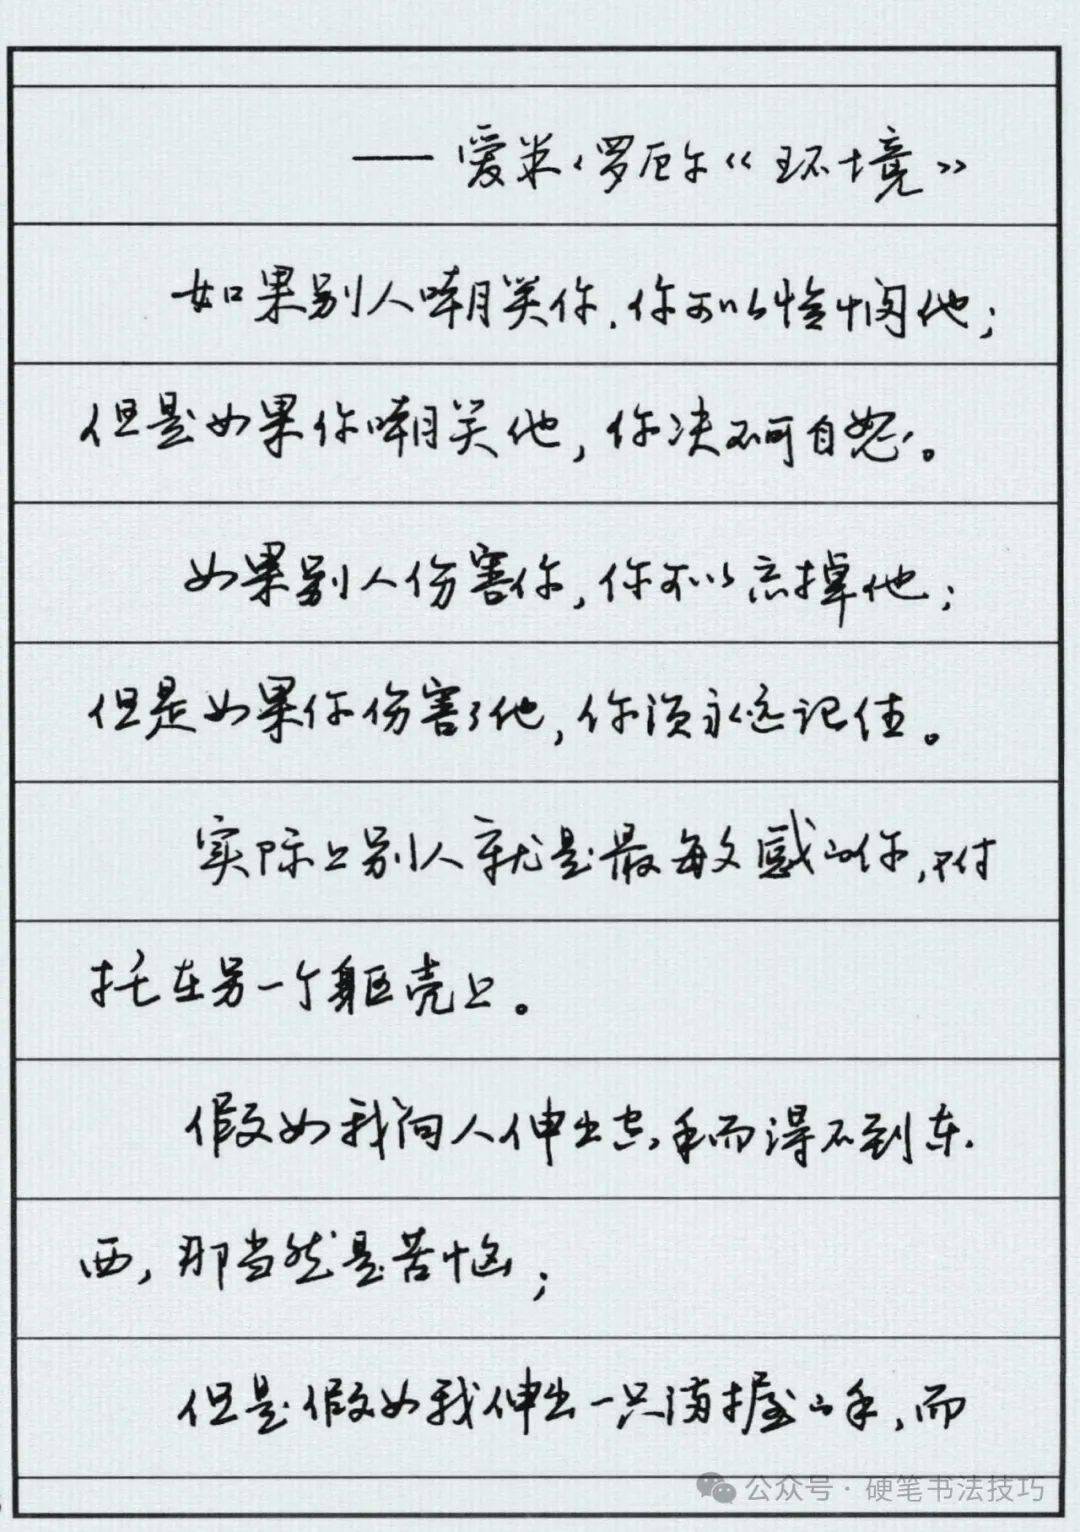 ——爱米·罗厄尔《环境》
如果别人嘲笑你,你可以怜悯他;
但是如果你嘲笑他,你决不可自恕。
如果别人伤害你,你可以忘掉他;
但是如果你伤害了他,你须永远记住。
实际上别人就是最敏感的你,只付
托在另一个躯壳上。
假如我向人伸出空手而得不到东
西,那当然是苦恼;
但是假如我伸出一只满握的手,而
公众号·硬笔书法技巧